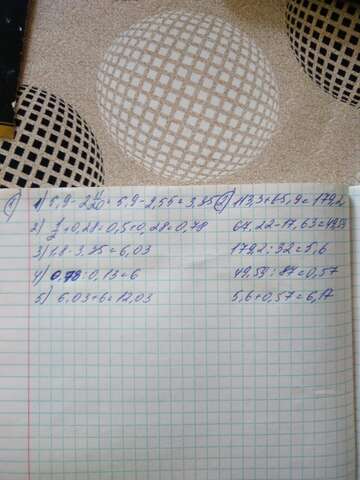 1) 1) 5,9-2 11/20=5,9-2,55=3,35
2) 1/2+0,28=0,5+0,28=0,78
3) 1,8·3,35=6,03
4) 0,78:0,13=6
5) 6,03+6=12,03
2) 113,3+65,9=179,2
67,22-17,63=49,59
179,2:32=5,6
49,59:87=0,57
5,6+0,57=6,17